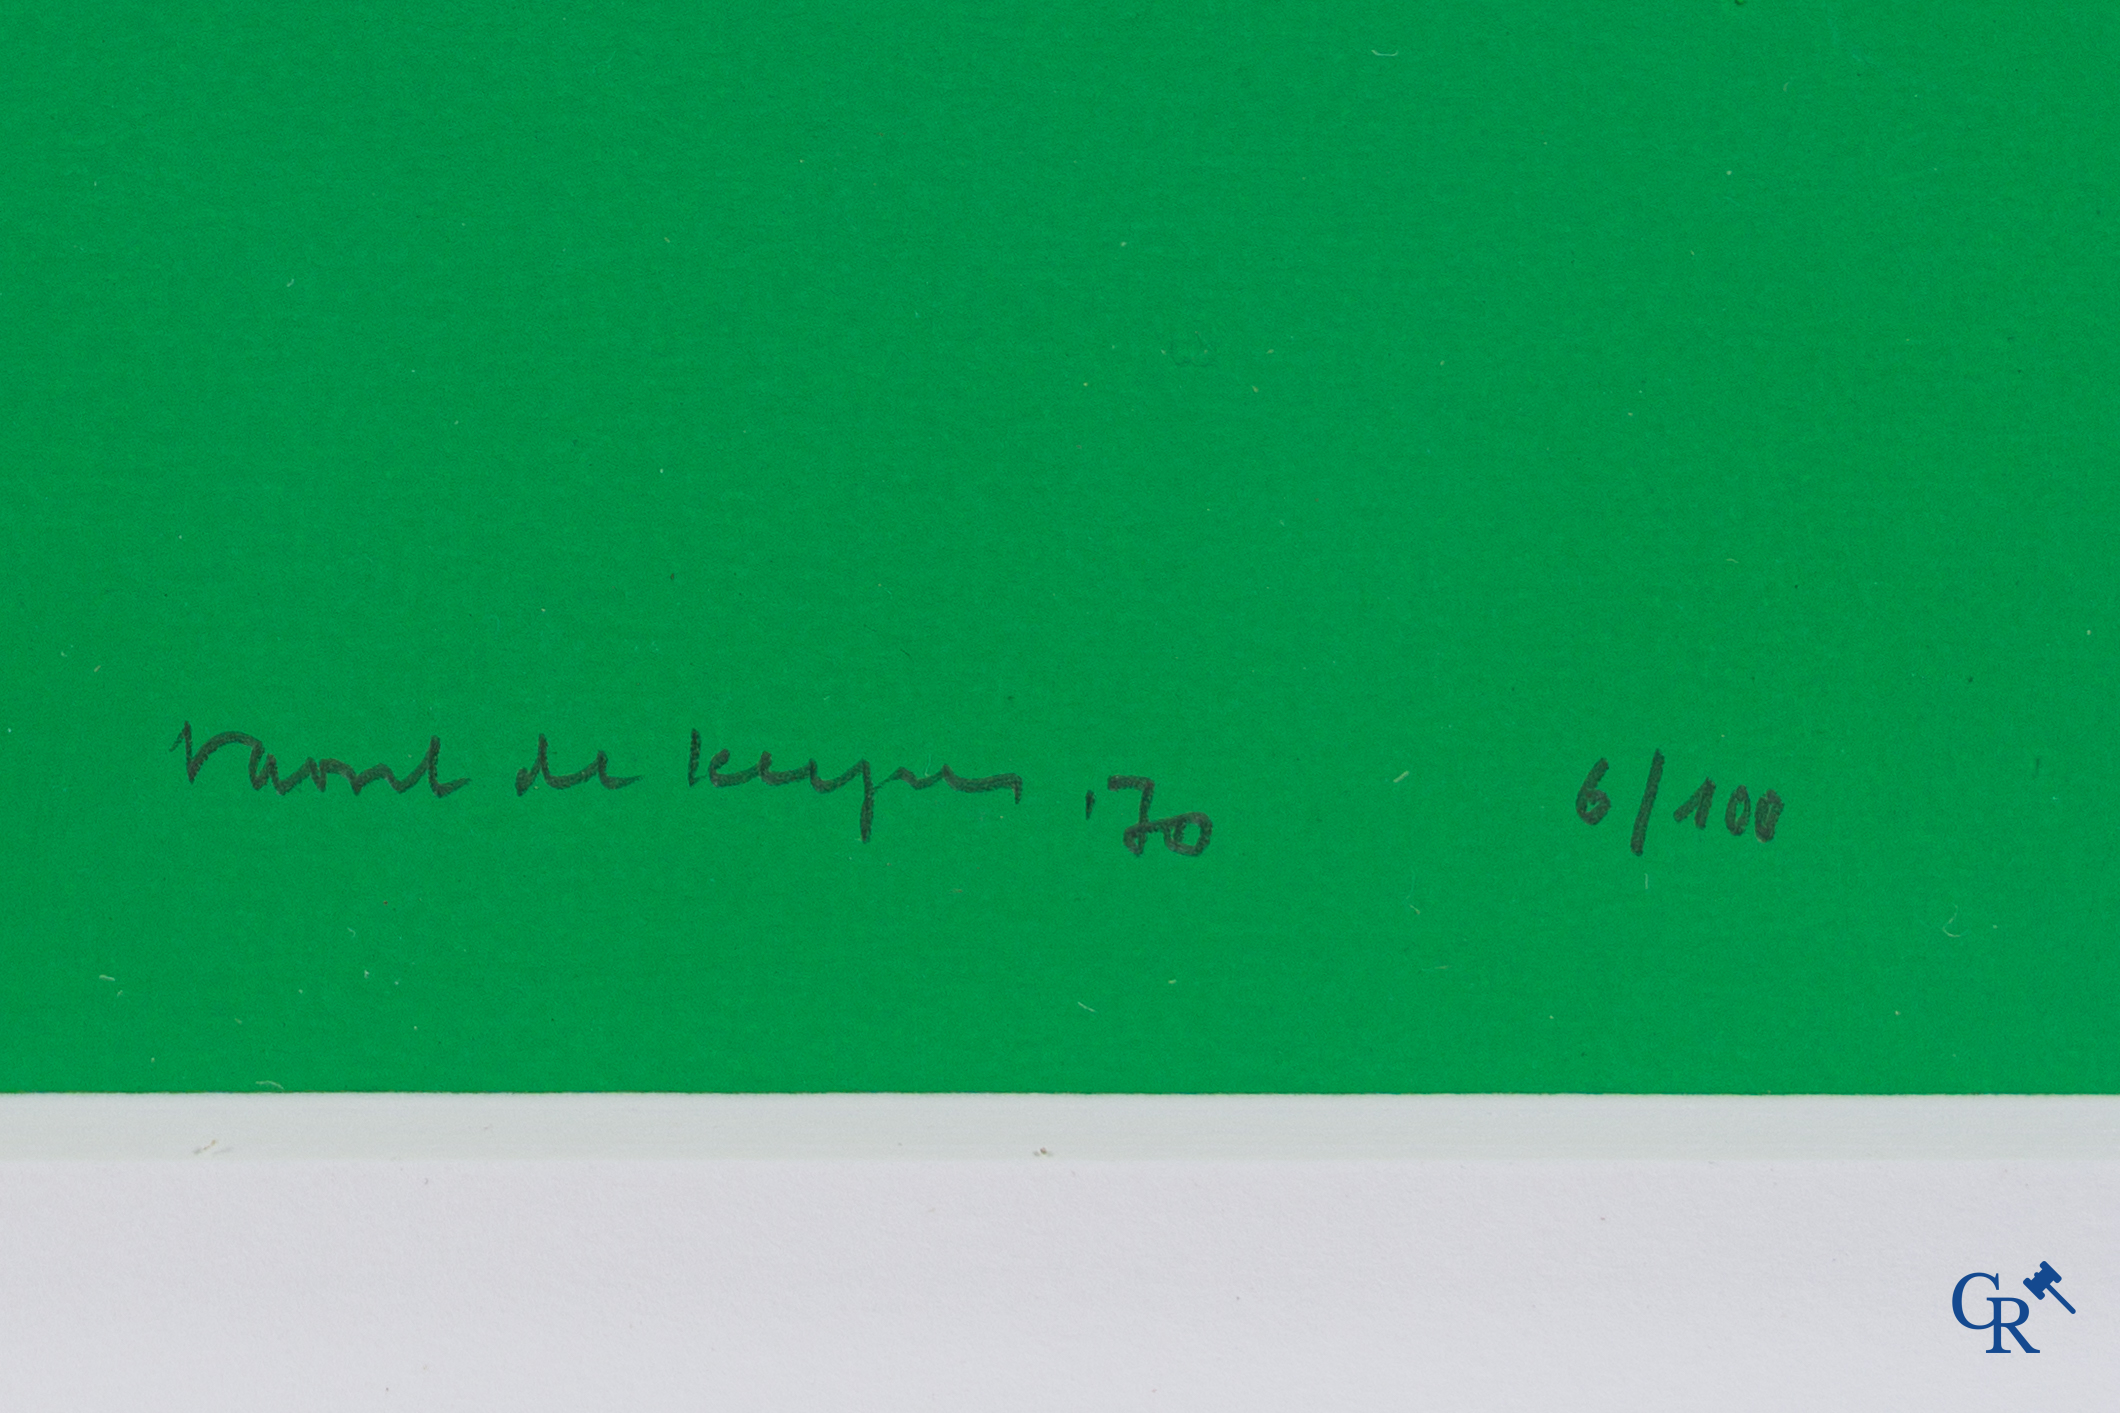 raoul de keyser '70 6/100
GR